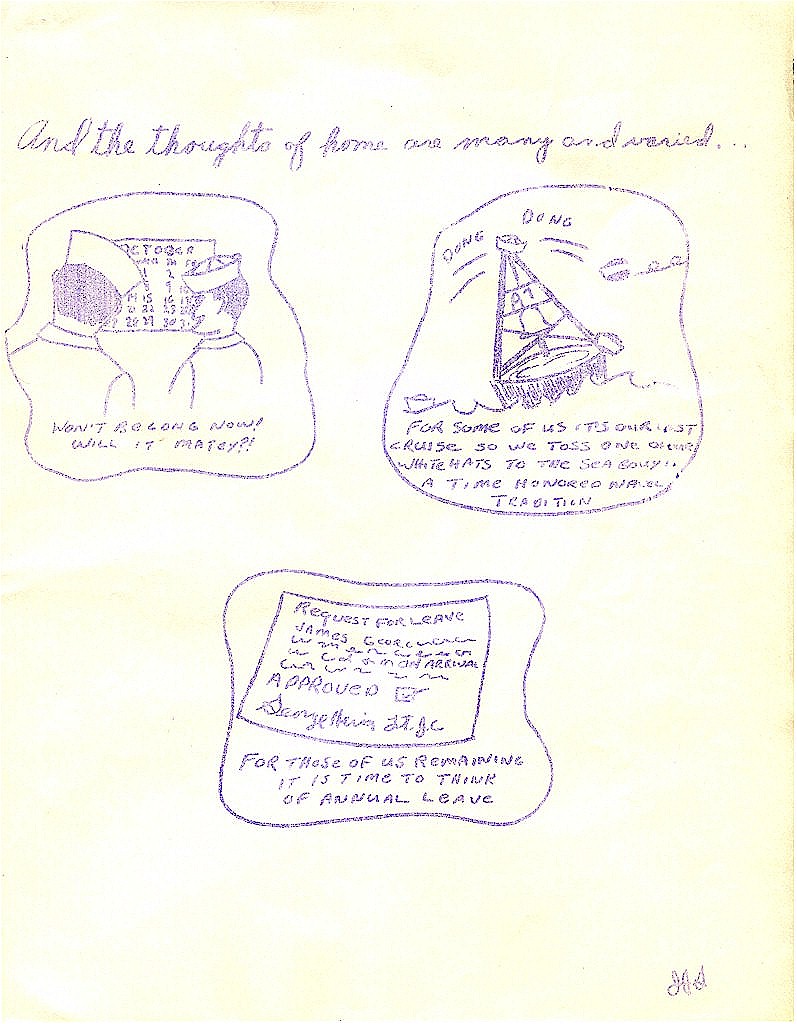 And the thoughts of home are many and varied...
OCTOBER
1 2
9
15 16
22 23
28 29 30 31
WON'T BE LONG NOW!
WILL IT MATEY?!
DONG DONG
FOR SOME OF US IT'S OUR LAST
CRUISE SO WE TOSS ONE OF OUR
WHITE HATS TO THE SEA BOUY!!
A TIME HONORED NAVAL
TRADITION
REQUEST FOR LEAVE
JAMES
ON ARRIVAL
APPROVED
George LT.jg
FOR THOSE OF US REMAINING
IT IS TIME TO THINK
OF ANNUAL LEAVE